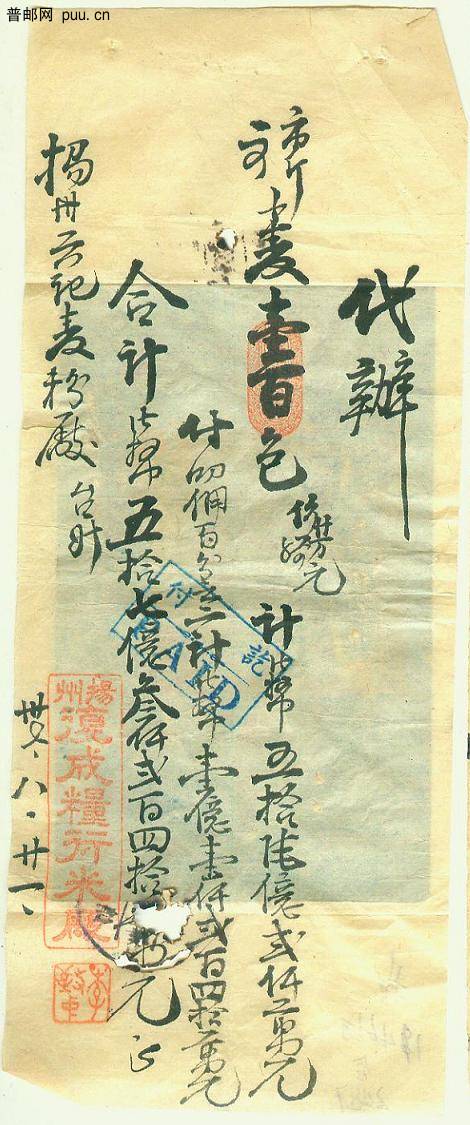 普邮网 puu.cn
代辦
市斤
麦壹百包
元
計法幣五拾陸億弍仟萬元
付佣百分之二計法幣壹億壹仟弍百四拾萬元
合計法幣五拾七億叁仟弍百四拾元正
付訖
PAID
揚州公記麦粉廠台照
揚州
復成糧行米廠
卅七、八、廿一、